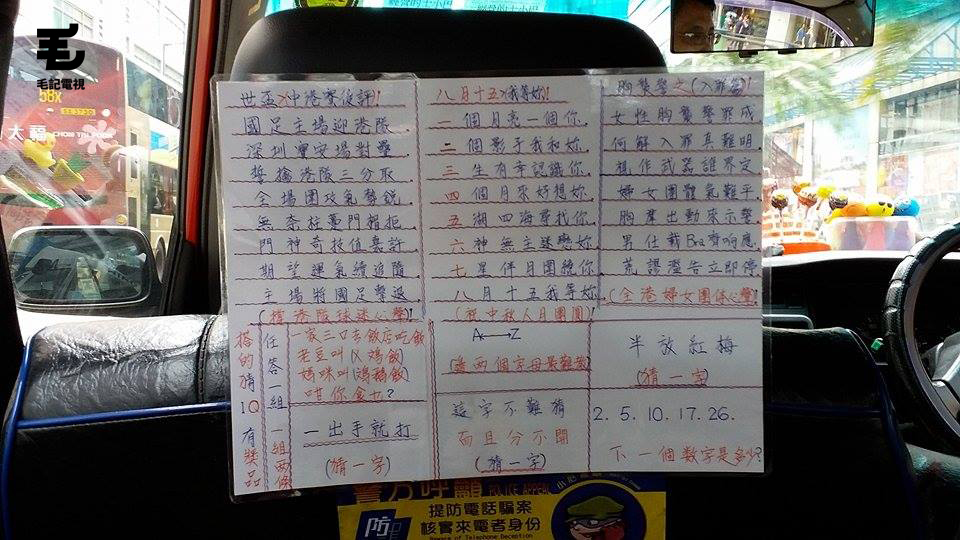 毛記電視
大福
58X
世盃中港賽後評!
國足主場迎港隊
深圳寶安場對壘
誓擒港隊三分取
全場圍攻氣勢銳
無奈柱臺門楣拒
門神奇技值嘉許
期望運氣續追隨
主場將國足擊退
(撐港隊球迷心聲)
八月十五(我等妳)!
一個月亮一個你.
二個影子我和妳.
三生有幸認識你.
四個月來好想妳.
五湖四海尋找你.
六神無主迷戀妳.
七星伴月團繞你
八月十五我等妳.
(祝中秋人月團圓)
胸襲警之(入罪篇)!
女性胸襲警罪成.
何解入罪真難明.
視作武器誰界定
婦女團體氣難平.
胸罩出動來示警.
男仕戴Bra齊响應.
荒謬濫告立即停
(全港婦女團体心聲)!
搭的猜IQ有獎品
任答一組一組兩條
一家三口去飯店吃飯
老豆叫(X鸡飯)
媽咪叫(鸡鵝飯)
咁你食乜?
一出手就打
(猜一字)
A—Z
(邊兩個字母最難搵)
這字不難猜
而且分不開
(猜一字)
半放紅梅
(猜一字)
2. 5. 10. 17. 26.
下一個数字是多少?
警方呼籲 POLICE APPEAL
提防電話騙案
核實來電者身份
Beware of Telephone Deception